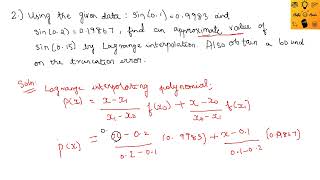 2.) Using the given data: sin(0.1)=0.9983 and
sin(0.2)=0.19867, find an approximate value of
sin(0.15) by Lagrange interpolation. Also obtain a bound
on the truncation error.
Soln: Lagrange interpolating polynomial;
P(x) = x-x₁ / x₁-x₀ f(x₀) + x-x₀ / x₀-x₁ f(x₁)
P(x) = - 0.2 / 0.2-0.1 (0.9983) + x-0.1 / 0.1-0.2 (0.19867)